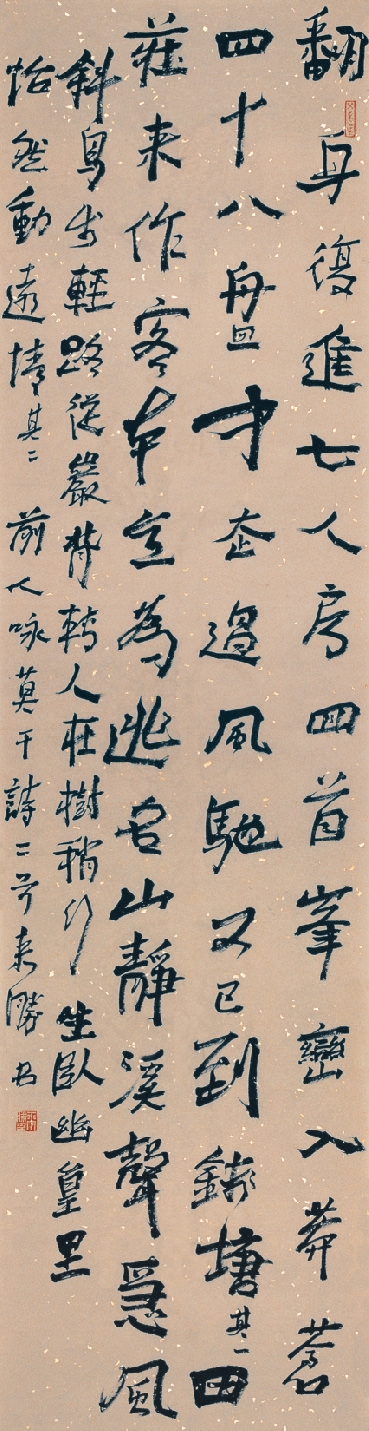 翻身復進七人房回首峯巒入莽蒼
四十八盤才走過風馳又已到錢塘其一田
莊来作客本意為逃名山靜溪聲急風
斜鳥步輕路從巖背轉人在樹梢行坐臥幽皇里
怡然動遠情其二前人咏莫干詩二首来勝书